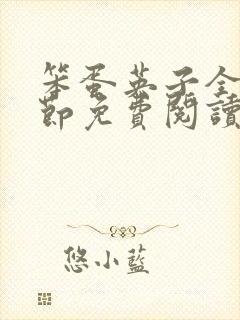 笨蛋英子全
節免費閱讀
悠小藍